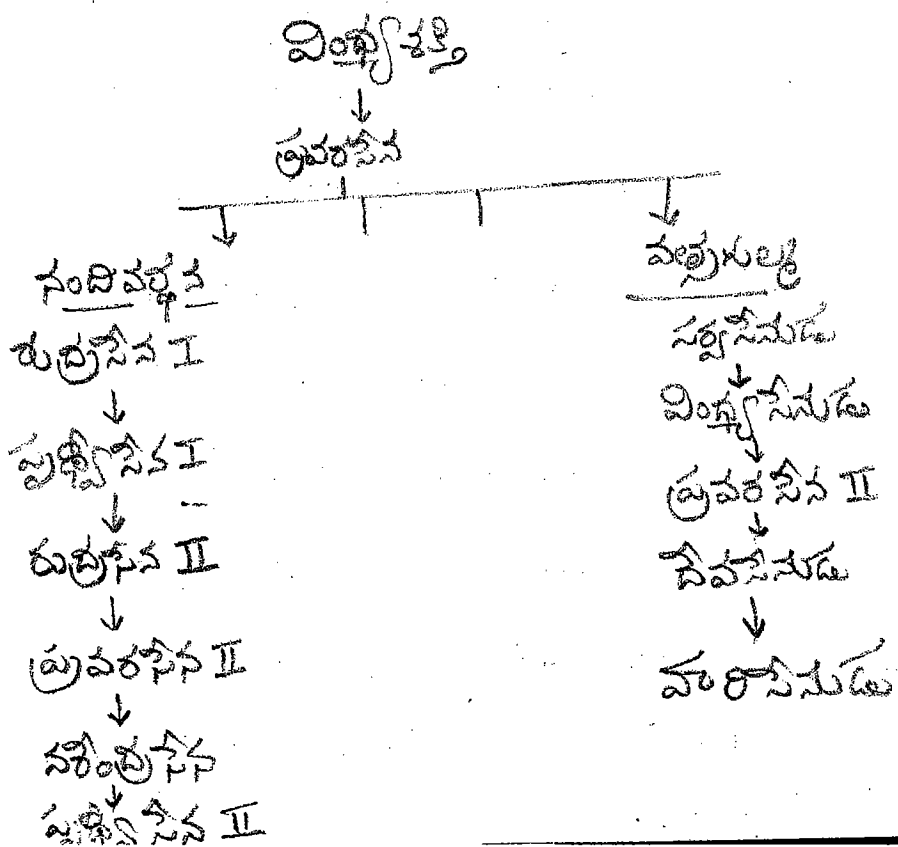 వింధ్యశక్తి
ప్రవరసేన
నందివర్ధన
రుద్రసేన I
పృథ్వీసేన I
రుద్రసేన II
ప్రవరసేన II
నరేంద్రసేన
పృథ్వీసేన II
వత్సగుల్మ
సర్వసేనుడు
వింధ్యసేనుడు
ప్రవరసేన II
దేవసేనుడు
హరిసేనుడు